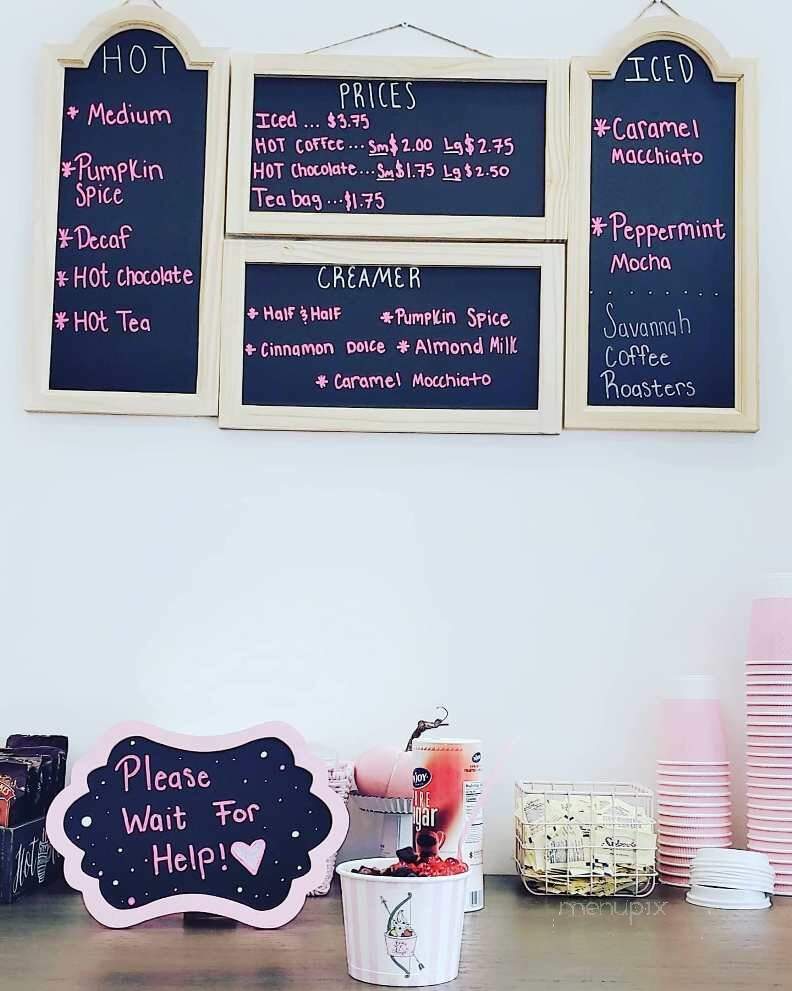 HOT
* Medium
* Pumpkin
Spice
* Decaf
* HOt chocolate
* HOt Tea
PRICES
Iced ... $3.75
HOT COffee ... Sm $2.00 Lg $2.75
HOT Chocolate ... Sm $1.75 Lg $2.50
Tea bag ... $1.75
CREAMER
* Half & Half * Pumpkin Spice
* Cinnamon Dolce * Almond Milk
* Caramel Mocchiato
ICED
* Caramel
Macchiato
* Peppermint
Mocha
Savannah
Coffee
Roasters
Please
Wait For
Help!
NJOY
menupix